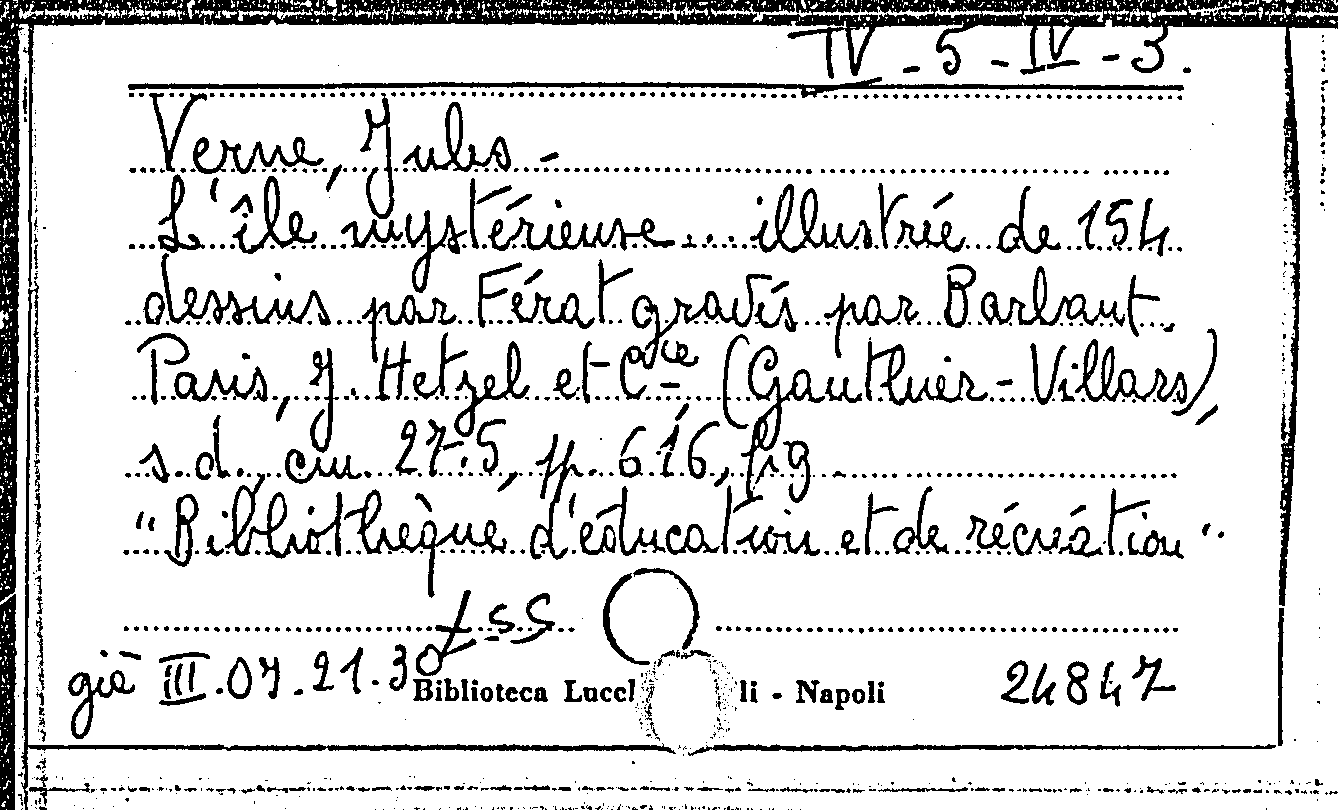 IV - 5 - IV - 3.
Verne, Jules -
L'île mystérieuse... illustrée de 154
dessins par Férat gravés par Barbaut.
Paris, J. Hetzel et Cie (Gauthier-Villars),
s.d., cm. 27.5, pp. 616, fig
"Bibliothèque d'éducation et de récréation".
già III.07.21.30
Biblioteca Lucc li - Napoli
24847